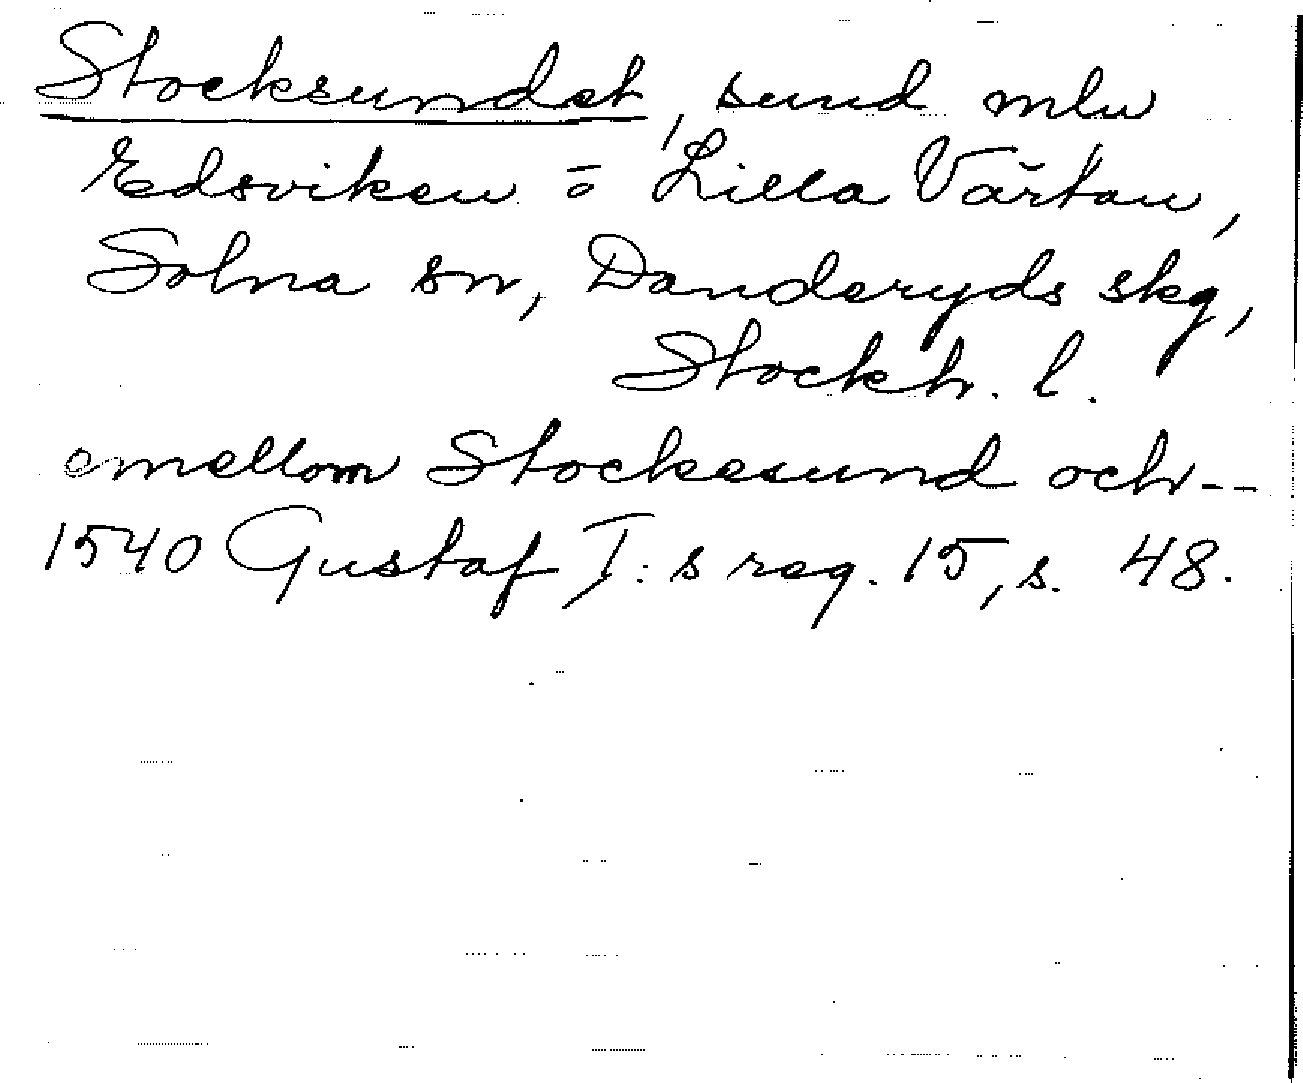 Stocksundet, sund mlw
Edsviken o Lilla Värtan,
Solna sn, Danderyds skg,
Stockh. l.
emellom Stockesund och--
1540 Gustaf I:s reg. 15, s. 48.